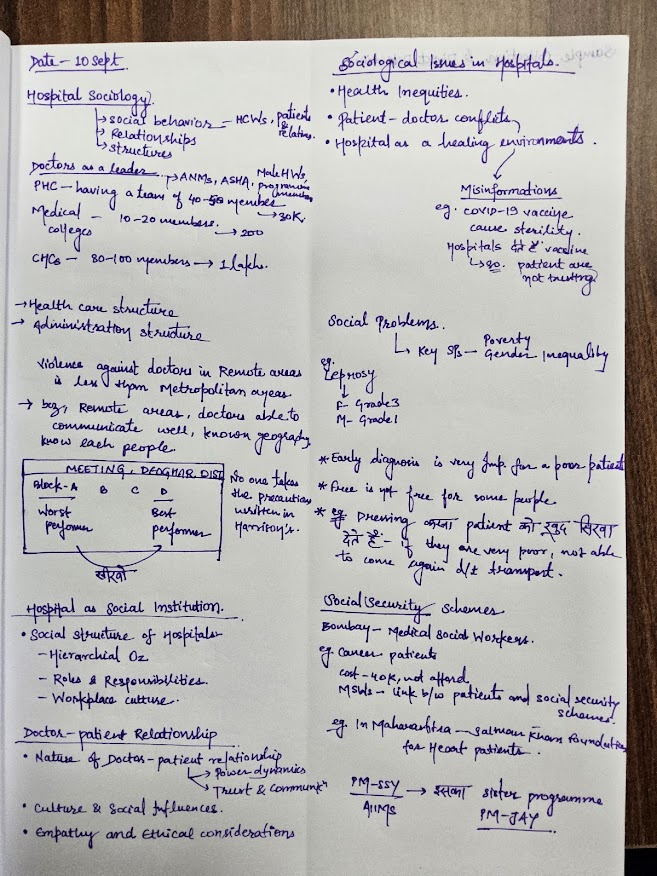 Date - 10 Sept.
Hospital Sociology.
↳ social behavior - HCWs, patients & relatives.
↳ Relationships
↳ structures
Doctors as a leader
→ ANMs, ASHA, Male HWs,
PHC - having a team of 40-50 member
→ 30K.
Medical colleges - 10-20 members.
→ 200
CHCs - 80-100 members → 1 lakh.
→ Health care structure
→ Administration structure
Violence against doctors in Remote areas
is less than Metropolitan areas.
→ bcz, Remote areas, doctors able to
communicate well, known geography,
know each people.
MEETING, DEOGHAR DIST
Block-A B C D
Worst performer
Best performer
सीखो
No one takes
the precaution
written in
Harrison's.
Hospital as Social Institution.
• Social structure of Hospitals-
- Hierarchial Oz
- Roles & Responsibilities.
- Workplace culture.
Doctor-patient Relationship
• Nature of Doctor-patient relationship
↳ Power dynamics
↳ Trust & Communicⁿ
• Culture & Social Influences.
• Empathy and Ethical considerations
Sociological Issues in Hospitals.
• Health Inequities.
• Patient-doctor conflicts
• Hospital as a healing environments.
Misinformations
eg. COVID-19 vaccine
cause sterility.
Hospitals देते हैं vaccine
↳ so. patient are
not trusting
Social Problems.
↳ Key SPs - Poverty
Gender Inequality
eg.
Leprosy
↓
F - Grade 3
M - Grade 1
* Early diagnosis is very Imp. for a poor patient
* Free is not free for some people
* eg Dressing करना patient को खुद सिखा
देते हैं:- if they are very poor, not able
to come again d/t transport.
Social Security schemes
Bombay - Medical Social Workers.
eg. Cancer patients
cost - 40K, not afford.
MSWs - link b/w patients and social security
schemes.
eg. In Maharashtra - Salman Khan Foundation
for Heart patients.
PM-SSY → इसका sister programme
AIIMS
PM-JAY